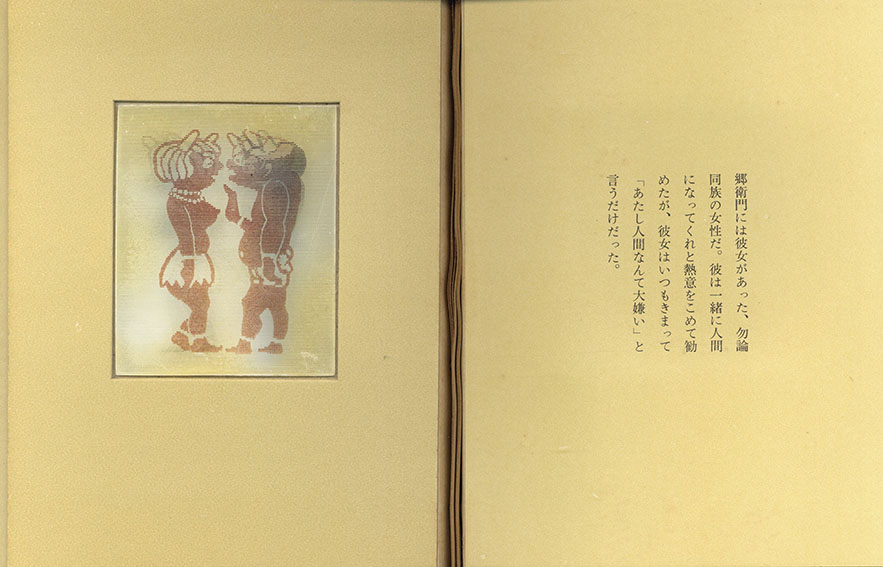 郷衛門には彼女があった、勿論
同族の女性だ。彼は一緒に人間
になってくれと熱意をこめて勧
めたが、彼女はいつもきまって
「あたし人間なんて大嫌い」と
言うだけだった。